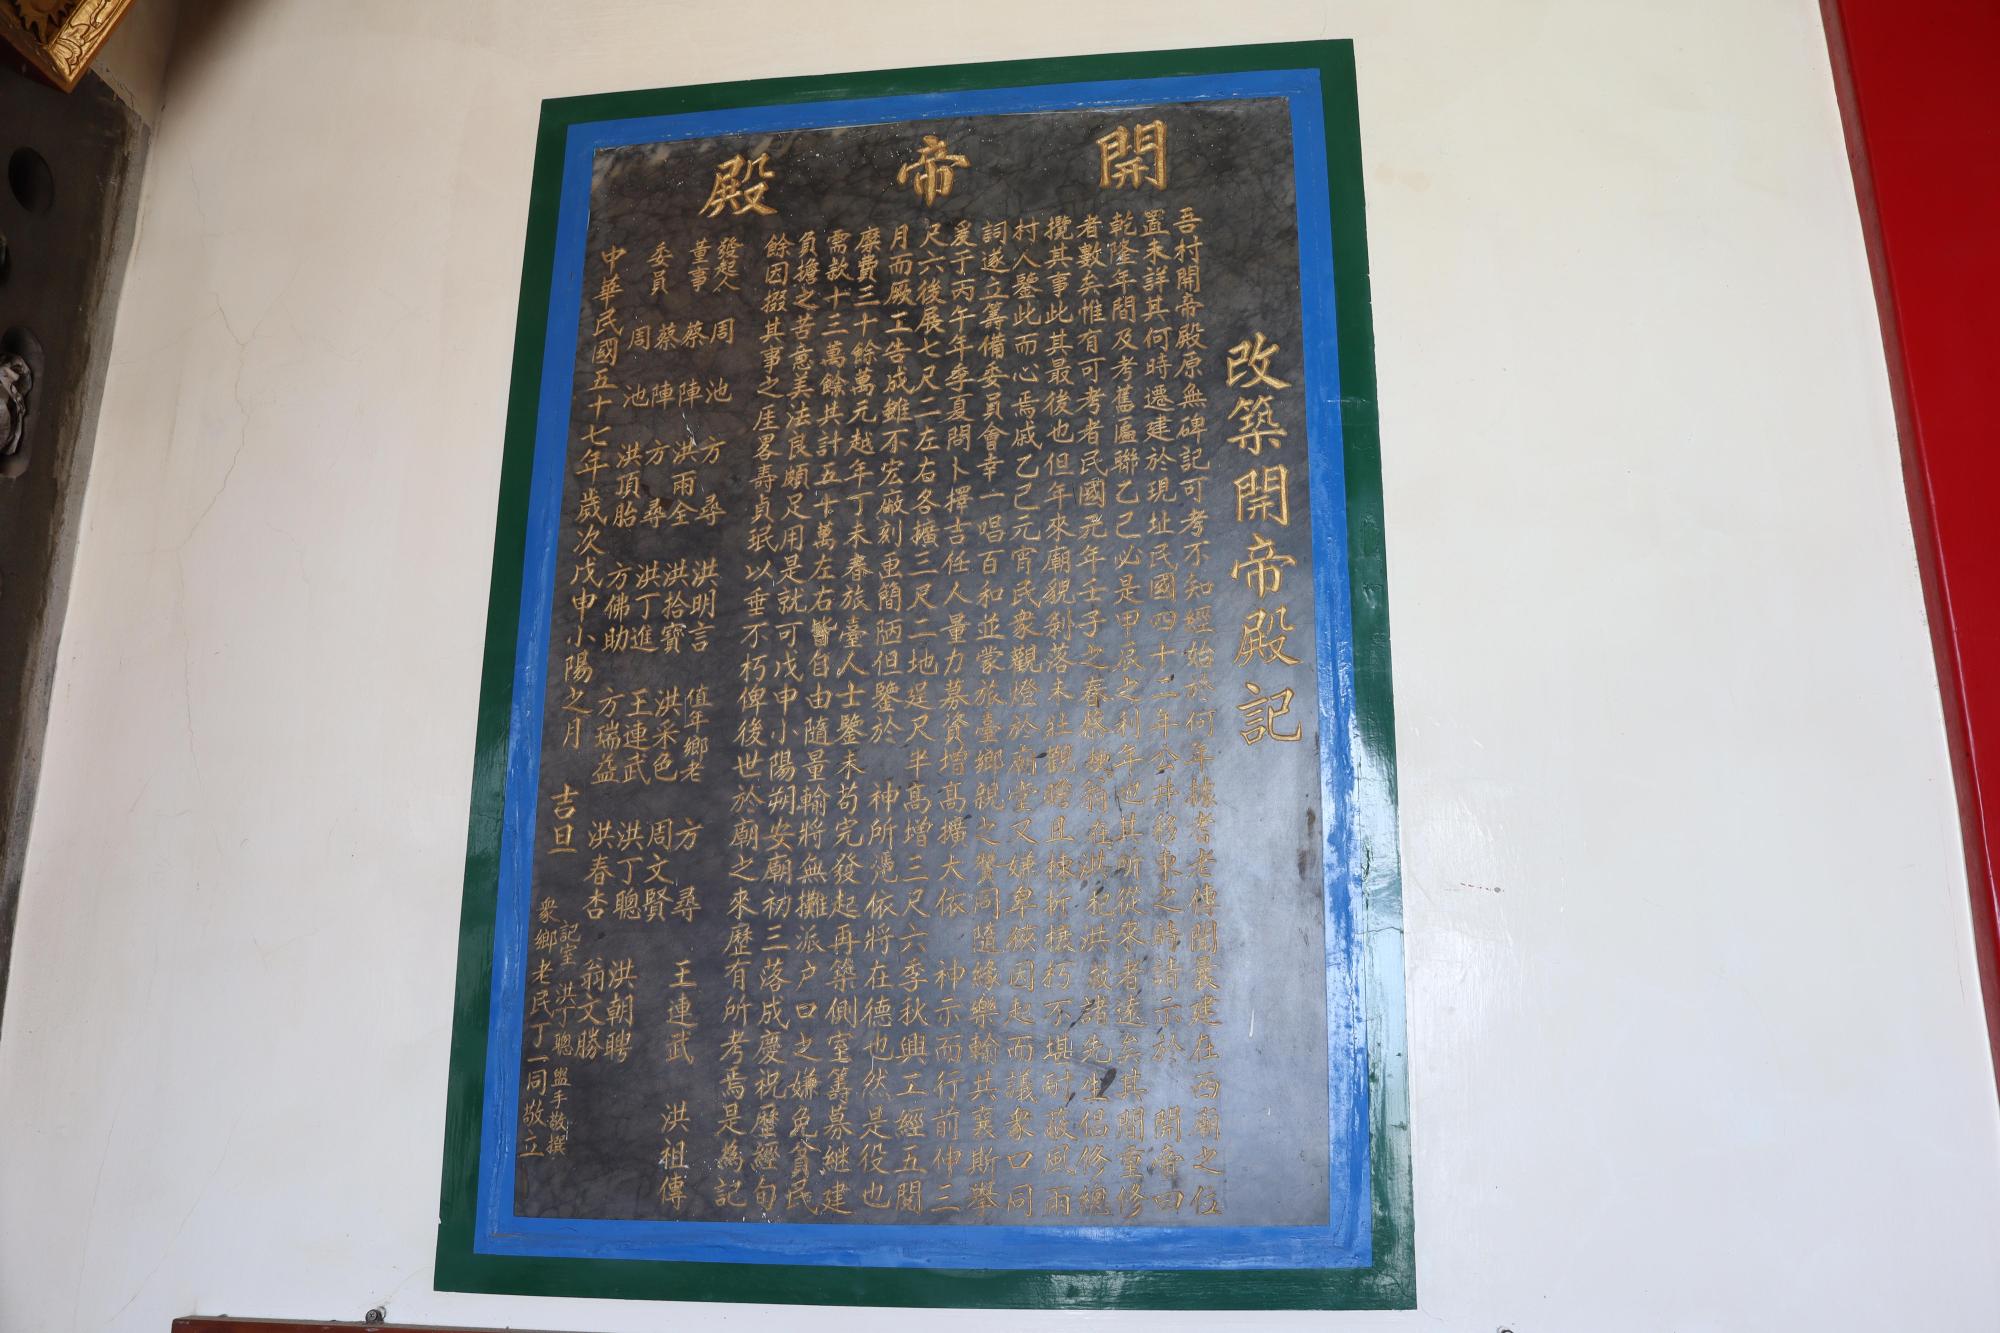 開帝殿
改築開帝殿記
吾村開帝殿原無碑記可考不知經始於何年據耆老傳聞曩建在西廟之位
置未詳其何時遷建於現址民國四十二年公井移東之時請示於 開帝曰
乾隆年間及考舊匾聯乙己必是甲辰之利年也其所從來者遠矣其間重修
者數矣惟有可考者民國元年壬子之春蔡 翁在洪 洪 諸先生倡修總
攬其事此其最後也但年來廟貌剝落未壯觀瞻且棟折榱朽不堪耐蔽風雨
村人鑒此而心焉戚乙己元宵民衆觀燈於廟堂又嫌卑狹因起而議衆口同
詞遂立籌備委員會幸一唱百和並蒙旅臺鄉親之贊同隨緣樂輸共襄斯舉
爰于丙午年季夏問卜擇吉任人量力募資增高擴大依 神示而行前伸三
尺六後展七尺二左右各擴三尺二地是尺半高增三尺六季秋興工經五閱
月而厥工告成雖不宏敞刻画簡陋但鑒於 神所憑依將在德也然是役也
糜費三十餘萬元越年丁未春旅臺人士鑒未苟完發起再築側室籌募継建
需款十三萬餘共計五十萬左右皆自由隨量輸將無攤派户口之嫌免貧民
負擔之苦意美法良頗足用是就可戊申小陽朔安廟初三落成慶祝歷經旬
餘因掇其事之厓畧壽貞珉以垂不朽俾後世於廟之來歷有所考焉是為記
發起人 周池 方尋 洪明言 值年鄉老 方尋 王連武 洪祖傳
董事 蔡陣 洪雨全 洪拾寶 洪采色 周文賢
委員 蔡陣 方尋 洪丁進 王連武 洪丁聰 洪朝聘
周池 洪頂胎 方佛助 方瑞益 洪春杏 翁文勝
中華民國五十七年歲次戊申小陽之月 吉旦
記室 洪丁聰 盥手敬撰
衆鄉老民丁一同敬立